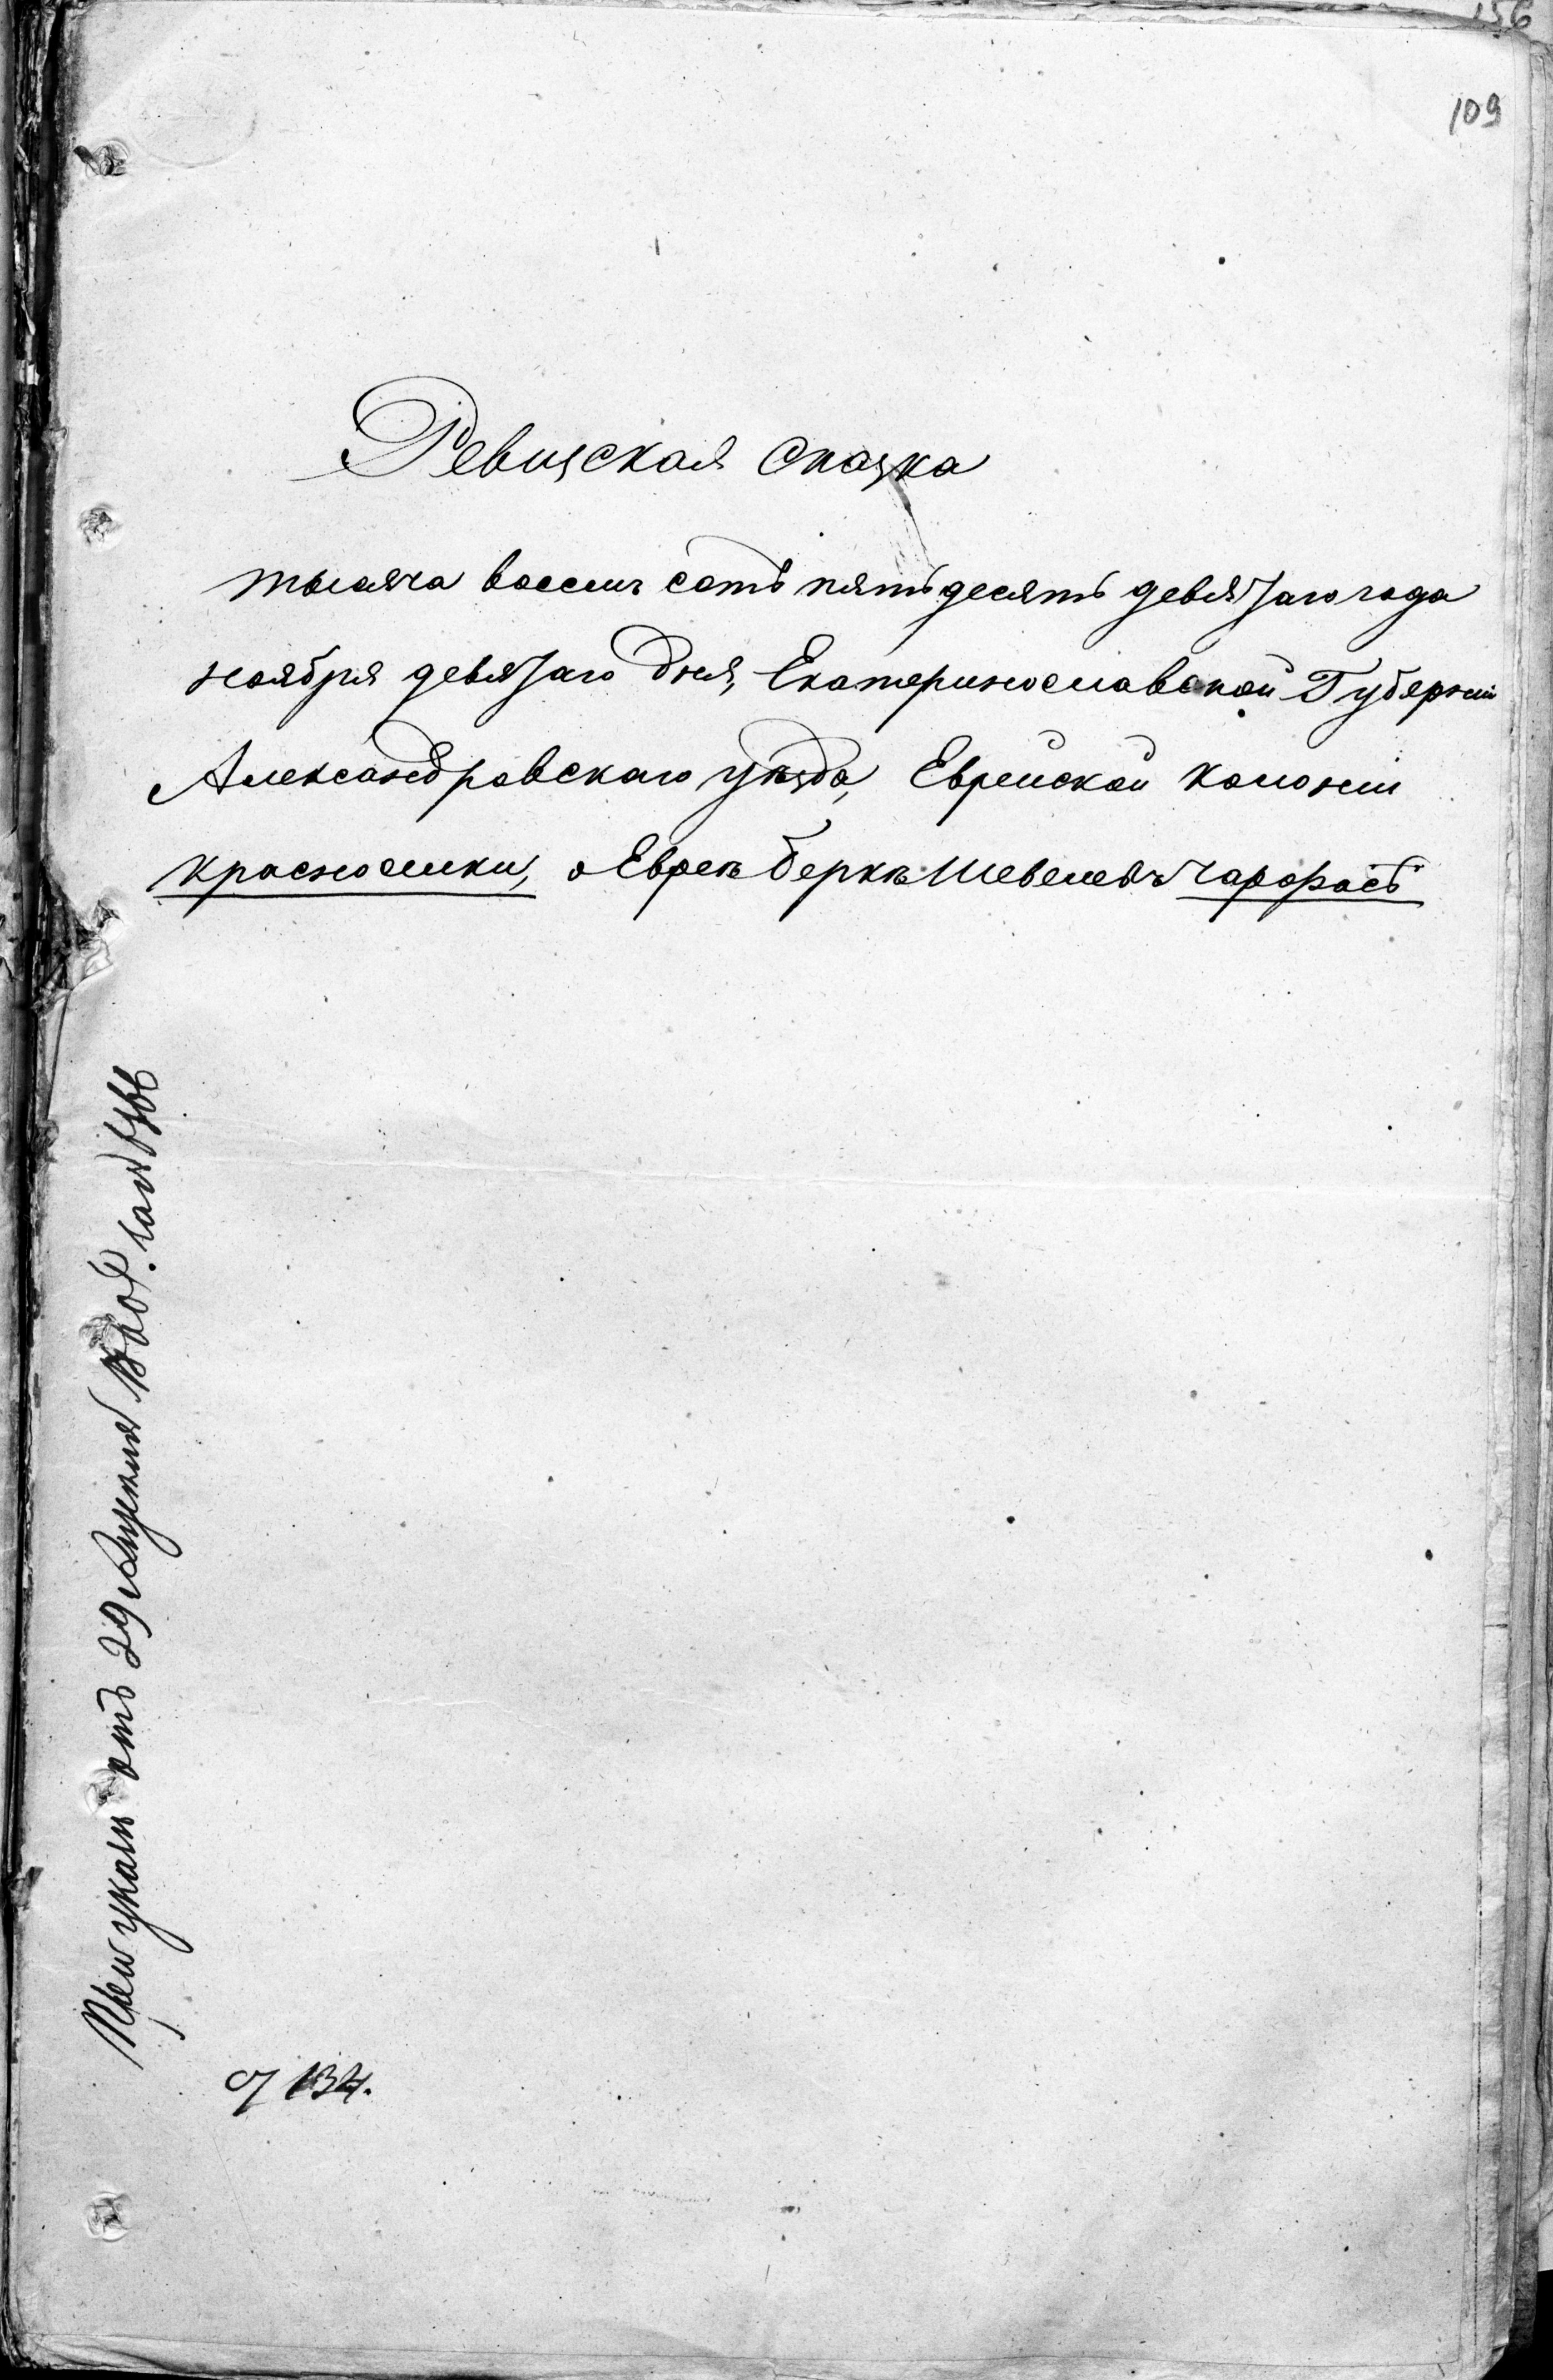 156
109
Ревизская сказка
тысяча восемь сотъ пятьдесятъ девятаго года
ноября девятаго дня, Екатеринославской Губерніи
Александровскаго уѣзда, Еврейской колоніи
Красноселки, о Евреѣ Беркѣ Шевелевѣ Чарфасъ
При указѣ отъ 29 Августа 1860 г. за №
134.